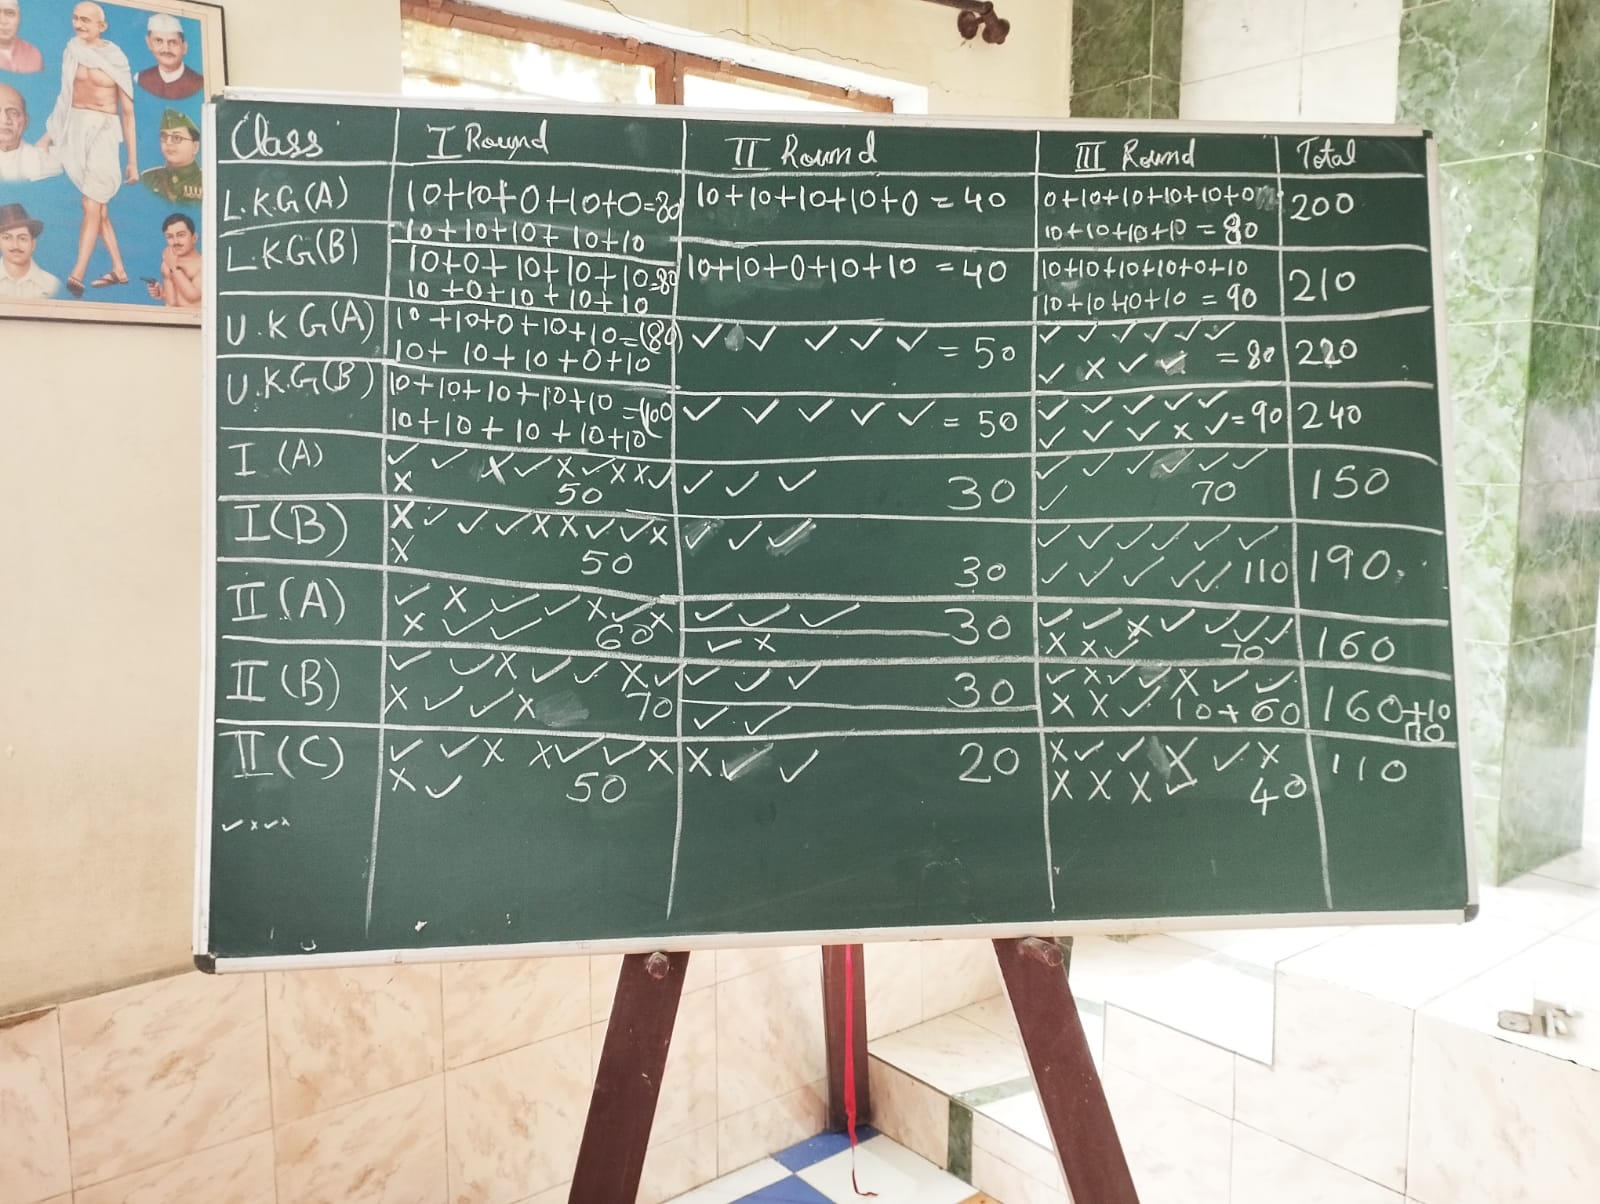 Class I Round II Round III Round Total
L.K.G(A) 10+10+0+10+0=80 10+10+10+10+0 = 40 0+10+10+10+10+0 200
10+10+10+10+10 10+10+10+10 = 80
L.KG(B) 10+0+10+10+10=80 10+10+0+10+10 = 40 10+10+10+10+0+10 210
10+0+10+10+10 10+10+10+10 = 90
U.K G(A) 10+10+0+10+10=(80) ✓ ✓ ✓ ✓ ✓ = 50 ✓ ✓ ✓ ✓ ✓ ✓ 220
10+10+10+0+10 ✓ X ✓ ✓ = 80
U.K.G(B) 10+10+10+10+10=100 ✓ ✓ ✓ ✓ ✓ = 50 ✓ ✓ ✓ ✓ ✓ = 90 240
10+10+10+10+10 ✓ ✓ ✓ X ✓
I (A) ✓ ✓ X ✓ X ✓ X X ✓ ✓ ✓ ✓ 30 ✓ ✓ ✓ ✓ ✓ ✓ 150
X 50 ✓ 70
I(B) X ✓ ✓ ✓ X X ✓ ✓ X ✓ ✓ ✓ ✓ ✓ ✓ ✓ ✓ ✓ 190
X 50 30 ✓ ✓ ✓ ✓ ✓ 110
II (A) ✓ X ✓ ✓ X ✓ X ✓ ✓ ✓ 30 ✓ ✓ X ✓ ✓ ✓ ✓ 160
X ✓ ✓ 60 ✓ X X X ✓ 70
II (B) ✓ ✓ X ✓ ✓ X ✓ ✓ ✓ ✓ 30 ✓ X ✓ ✓ X ✓ ✓ 160+10
X ✓ ✓ X 70 ✓ ✓ X X ✓ 10+60 170
II (C) ✓ ✓ X X ✓ ✓ X X ✓ ✓ 20 X ✓ ✓ X ✓ X 110
X ✓ 50 X X X ✓ 40
✓ X ✓ X